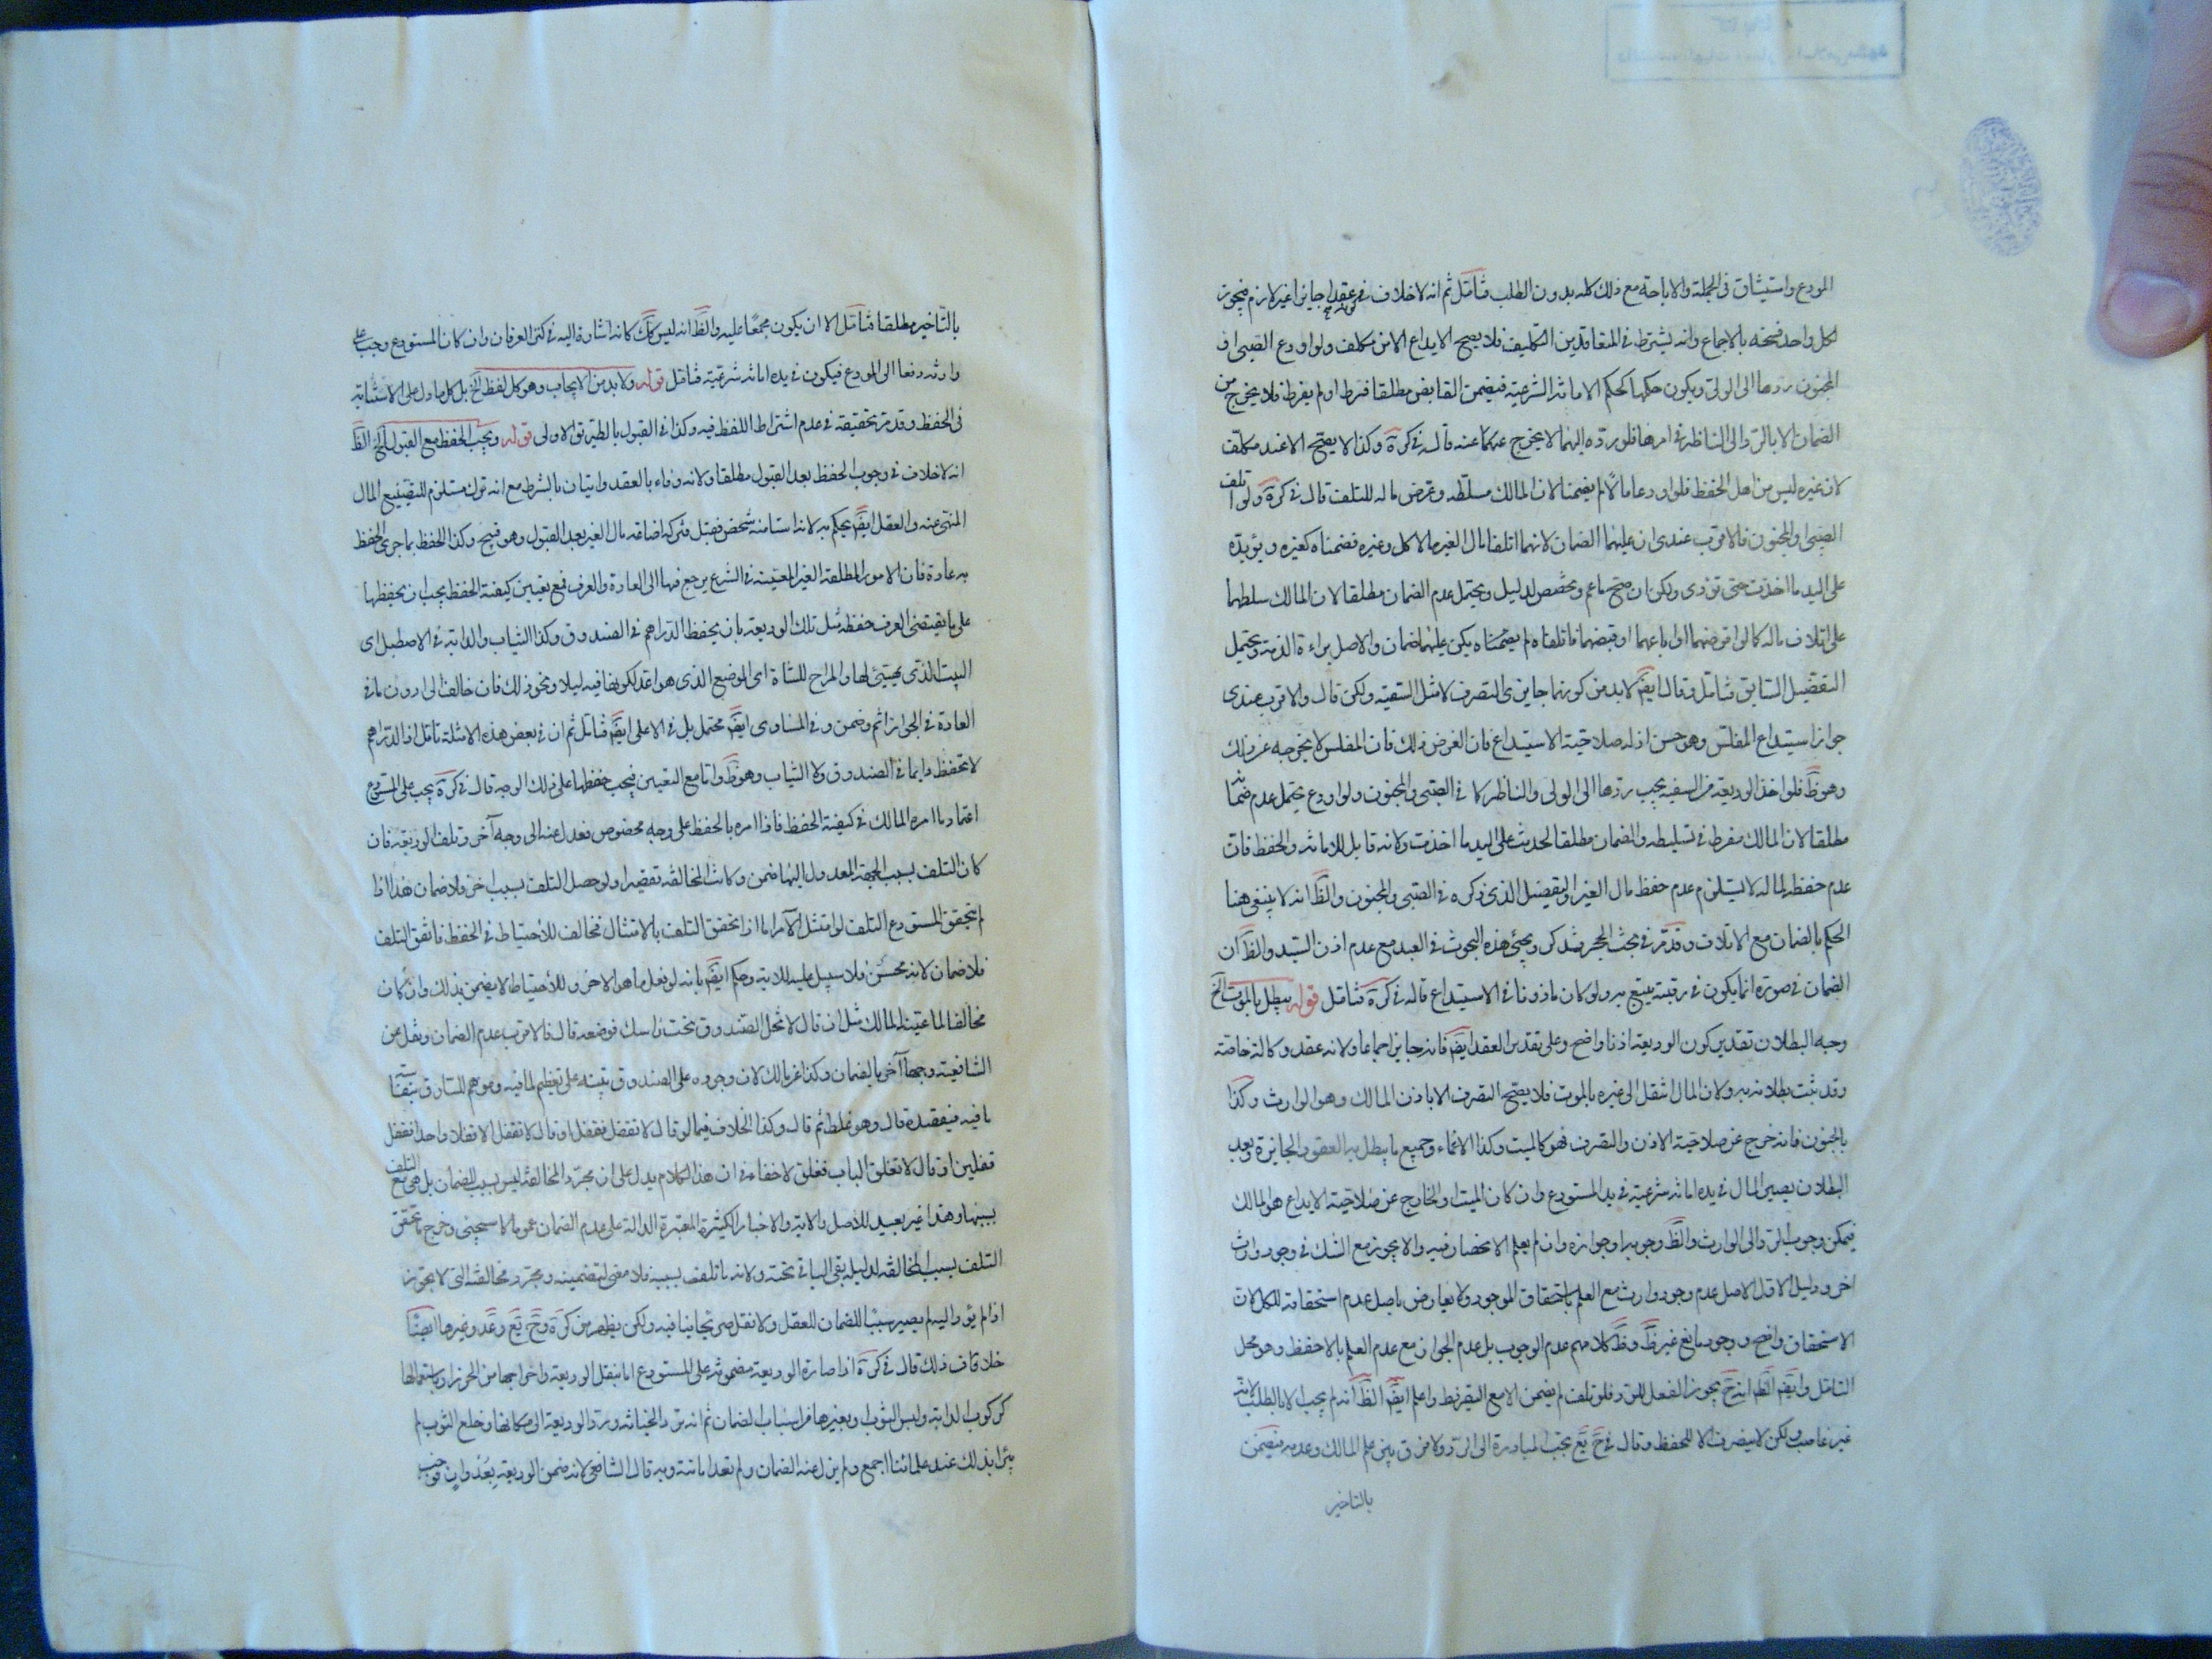 المودع واستيثاق في الجملة والاباحة مع ذلك كله بدون الطلب فتامل ثم انه لا خلاف في كونه عقدا جايزا غير لازم فيجوز
لكل واحد فسخه بالاجماع وانه يشترط في المتعاقدين التكليف فلا يصح الايداع الا من مكلف ولو اودع الصبى او
المجنون ردها الى الولى ويكون حكمها كحكم الامانة الشرعية فيضمن القابض مطلقا فرط او لم يفرط فلا يخرج من
الضمان الا بالرد الى الناظر في امرها فلو رده اليهما لا يخرج عنهما عنه قاله في كرة وكذا لا يصح الا عند مكلف
لان غيره ليس من اهل الحفظ فلو اودعا مالا لم يضمنا لان المالك سلطه وعرض ماله للتلف قال في كرة ولو اتلف
الصبى او المجنون فالاقرب عندى ان عليهما الضمان لانهما اتلفا مال الغير بالاكل وغيره فضمناه كغيره ويؤيده
على اليد ما اخذت حتى تؤدى ولكن ان صح ما عم ومخصص لدليل ويحتمل عدم الضمان مطلقا لان المالك سلطهما
على اتلاف ماله كما لو اقرضهما او باعهما او قبضهما فاتلفاه لم يضمناه يكن عليهما ضمان والاصل براءة الذمة ويحتمل
التفضيل السابق فتامل وقال ايضَ لا بد من كونهما جايزى التصرف لا مثل السفيه ولكن قال والاقرب عندى
جواز استيداع المفلس وهو حسن اذ له صلاحية الاستيداع فان الغرض ذلك فان المفلس لا يخرجه عن ذلك
وهو ظَ فلو اخذ الوديعة من السفيه يجب ردها الى الولى والناظر كما في الصبى والمجنون ولو اودع يحتمل عدم ضمانه
مطلقا لان المالك مفرط في تسليطه والضمان مطلقا لحديث على اليد ما اخذت ولانه قابل للامانة والحفظ فان
عدم حفظه لماله لا يستلزم عدم حفظ مال الغير او التفضيل الذى ذكره في الصبى والمجنون والظَ انه لا ينبغى هنا
الحكم بالضمان مع الاتلاف وقد مر في بحث الحجر فتذكر ويجئ هذه البحوث في العبد مع عدم اذن السيد والظَ ان
الضمان في صورة انما يكون في رقبته يتبع به ولو كان ماذونا في الاستيداع قاله في كرة فتامل قوله يبطل بالموت الخ
وجه البطلان تقدير كون الوديعة اذنا واضح وعلى تقدير العقد ايضَ فانه جايز اجماعا ولانه عقد وكالة خاصة
وقد ثبت بطلانه به ولان المال انتقل الى غيره بالموت فلا يصح التصرف الا باذن المالك وهو الوارث وكذا
بالجنون فانه خرج عن صلاحية الاذن والتصرف فهو كالميت وكذا الاغماء وجميع ما يبطل به العقود الجايزة وبعد
البطلان يصير المال في يده امانة شرعية في يد المستودع وان كان الميت او الخارج عن صلاحية الايداع هو المالك
فيمكن وجوب الرد الى الوارث والظَ وجوبه او جوازه وان لم يعلم الانحصار فيه والا يجوز مع الشك في وجود وارث
اخر ودليل الاول الاصل عدم وجود وارث مع العلم باستحقاق الموجود ولا يعارض باصل عدم استحقاقه للكل لان
الاستحقاق واضح ووجود مانع غير ظَ وظَ كلامهم عدم الوجوب بل عدم الجواز مع عدم العلم بالاحفظ وهو محل
التامل وايضَ الظَ انه حَ يجوز الفعل للرد فلو تلف لم يضمن الا مع التفريط واعلم ايضَ الظَ انه لم يجب الا بالطلب لانه
غير غاصب ولكن لا يتصرف الا للحفظ وقال في حَ يَع يجب المبادرة الى الرد ولا فرق بين علم المالك وعدمه فيضمن
بالتاخير
بالتاخير مطلقا فتامل الا ان يكون مجمعا عليه والظَ انه ليس كَك كانه اشار اليه في كنز العرفان وان كان المستودع وجب على
وارثه دفعها الى المودع فيكون في يده امانة شرعية فتامل قوله ولا بد من الايجاب وهو كل لفظ الخ بل كل ما دل على الاستنابة
في الحفظ وقد مر تحقيقه في عدم اشتراط اللفظ فيه وكذا في القبول بالطريق الاولى قوله ويجب الحفظ مع القبول الخ الظَ
انه لا خلاف في وجوب الحفظ بعد القبول مطلقا ولانه وفاء بالعقد واتيان بالشرط مع انه تركه مستلزم للتضييع المال
المنهى عنه والعقل ايضَ يحكم به لانه استامنه شخص فقبل فتركه اضاعة مال الغير بعد القبول وهو قبيح وكذا الحفظ بما جرى الحفظ
به عادة فان الامور المطلقة الغير المعينة في الشرع يرجع فيها الى العادة والعرف فمع تعيين كيفية الحفظ يجب ان يحفظها
على ما يقتضى العرف حفظه مثل تلك الوديعة بان يحفظ الدراهم في الصندوق وكذا الثياب والدابة في الاصطبل اى
البيت الذى يهيئ لها والمراح للشاة اى الموضع الذى هو اعد لكونها فيه ليلا ونحو ذلك فان خالف الى ادون ما في
العادة في الجواز اثم وضمن وفي المساوى ايضَ محتمل بل في الاعلى ايضَ فتامل ثم ان في بعض هذه الامثلة تامل اذ الدراهم
لا تحفظ دايما في الصندوق ولا الثياب وهو ظَ واما مع التعيين فيجب حفظها على ذلك الوجه قال في كرة يجب على المستودع
اعتماد ما امره المالك في كيفية الحفظ فاذا امره بالحفظ على وجه مخصوص فعدل عنه الى وجه آخر وتلف الوديعة فان
كان التلف بسبب الجهة المعدول اليها ضمن وكانت المخالفة تقصيرا ولو حصل التلف بسبب اخر فلا ضمان هذا اذا
لم يتحقق المستودع التلف لو امتثل الآمر اما اذا تحقق التلف بالامتثال فخالف للاحتياط في الحفظ فاتفق التلف
فلا ضمان لانه محسن فلا سبيل عليه للاية وحكم ايضَ بانه لو فعل ما هو الاحرز للاحتياط لا يضمن بذلك وان كان
مخالفا لما عينه المالك مثل ان قال لا تجعل الصندوق تحت راسك فوضعه قال فالاقرب عدم الضمان ونقل عن
الشافعية وجها آخر بالضمان وكذا عن مالك لان وجوده على الصندوق تنبيه على تعظيم لما فيه وموهم للسارق بنفاسة
ما فيه فيقصده قال وهو غلط ثم قال وكذا الخلاف فيما لو قال لا تقفل فقفل او قال لا تقفل الا قفلا واحدا فقفل
قفلين او قال لا تغلق الباب فغلق لا خفاء في ان هذا الكلام يدل على ان مجرد المخالفة ليس بسبب للضمان بل هى مع التلف
بسببها وهذا غير بعيد للاصل والاية والاخبار الكثيرة المعتبرة الدالة على عدم الضمان عموما كما سيجئ وخرج ما تحقق
التلف بسبب المخالفة لدليله بقى الباقى تحته ولانه ما تلف بسببه فلا معنى لتضمينه ومجرد مخالفة التى لا يجوز
اذا لم يؤد اليه لم يصير سببا للضمان للعقل ولا نقل صريحا بنا فيه ولكن يظهر من كرة وحَ يَع وعَد وغيرها ايضا
خلاف ذلك قال في كرة اذا صارة الوديعة مضمونة على المستودع اما بنقل الوديعة واخراجها من الحرز او باستعمالها
كركوب الدابة ولبس الثوب او بغيرها من اسباب الضمان ثم انه ترك الخيانة ورد الوديعة الى مكانها وخلع الثوب لم
يبرا بذلك عند علمائنا اجمع ولم يزل عنه الضمان ولم تعد امانته وبه قال الشافعى لانه ضمن الوديعة بعدوان فوجب